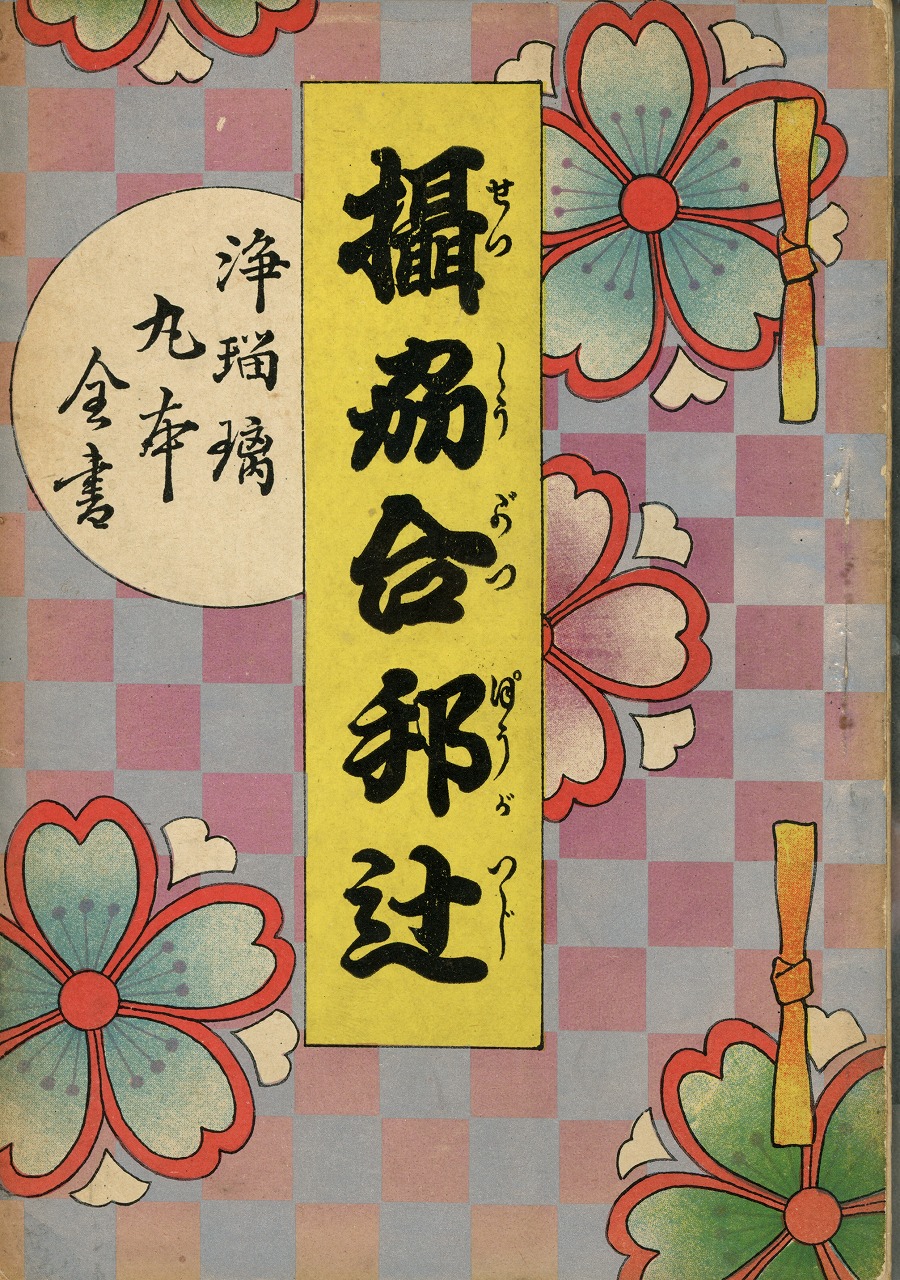 攝刕合邦辻
せつしうがつぽうがつじ
浄瑠璃
丸本
全書